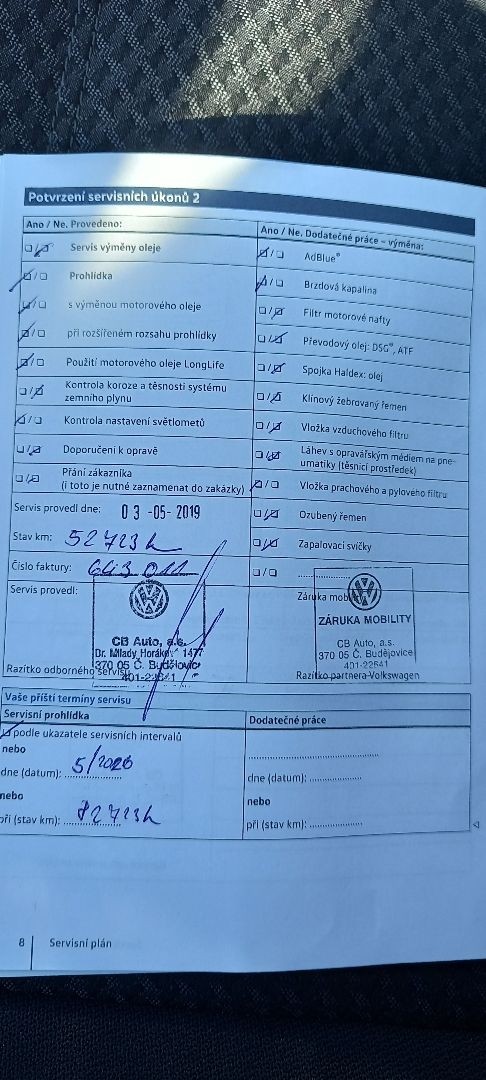 Potvrzení servisních úkonů 2
Ano / Ne. Provedeno:
Servis výměny oleje
Prohlídka
s výměnou motorového oleje
při rozšířeném rozsahu prohlídky
Použití motorového oleje LongLife
Kontrola koroze a těsnosti systému
zemního plynu
Kontrola nastavení světlometů
Doporučení k opravě
Přání zákazníka
(i toto je nutné zaznamenat do zakázky)
Ano / Ne. Dodatečné práce – výměna:
AdBlue®
Brzdová kapalina
Filtr motorové nafty
Převodový olej: DSG®, ATF
Spojka Haldex: olej
Klínový žebrovaný řemen
Vložka vzduchového filtru
Láhev s opravářským médiem na pne-
umatiky (těsnicí prostředek)
Vložka prachového a pylového filtru
Ozubený řemen
Zapalovací svíčky
Servis provedl dne: 03 -05- 2019
Stav km: 52723
Číslo faktury:
Servis provedl:
CB Auto, a.s.
Dr. Milady Horákov. 1477
370 05 Č. Budějovice
401-22541
Razítko odborného servisu
Záruka mobility
ZÁRUKA MOBILITY
CB Auto, a.s.
370 05 Č. Budějovice
401-22541
Razítko partnera Volkswagen
Vaše příští termíny servisu
Servisní prohlídka
podle ukazatele servisních intervalů
nebo
dne (datum): 5/2020
nebo
při (stav km): 82723
Dodatečné práce
dne (datum):
nebo
při (stav km):
8 Servisní plán